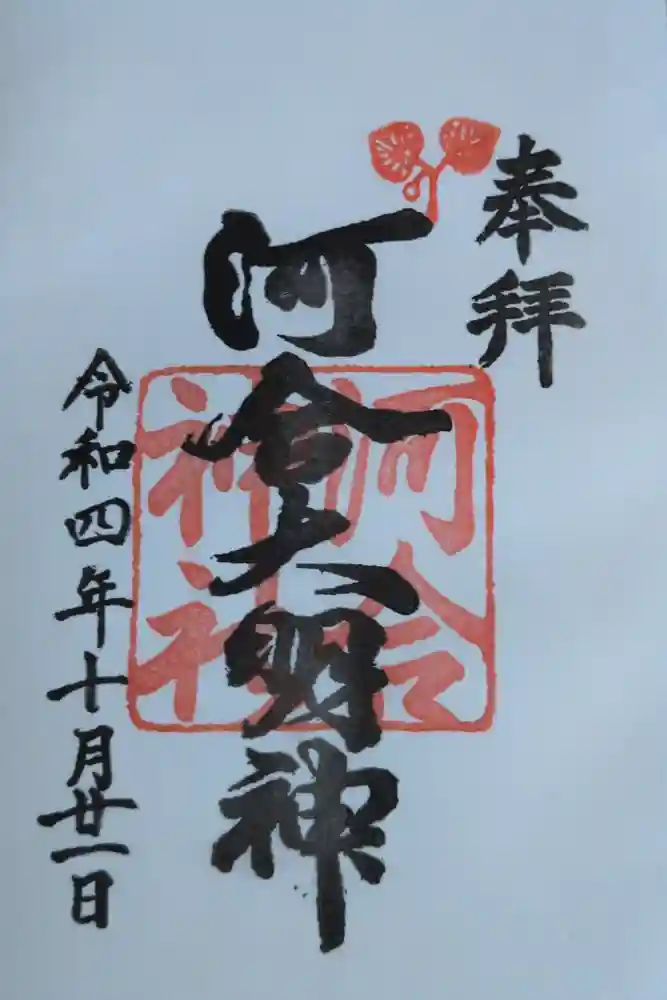 奉拝
河合大明神
河合
神社
令和四年十月廿一日